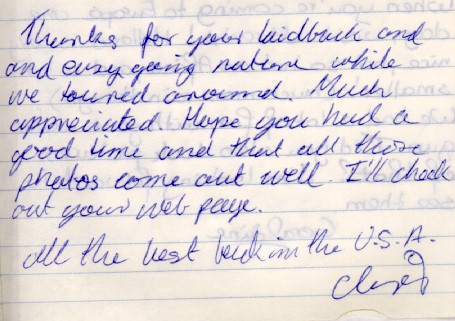 Thanks for your laidback and
and easy going nature while
we toured around. Much
appreciated. Hope you had a
good time and that all those
photos come out well. I'll check
out your web page.
All the best back in the U.S.A.